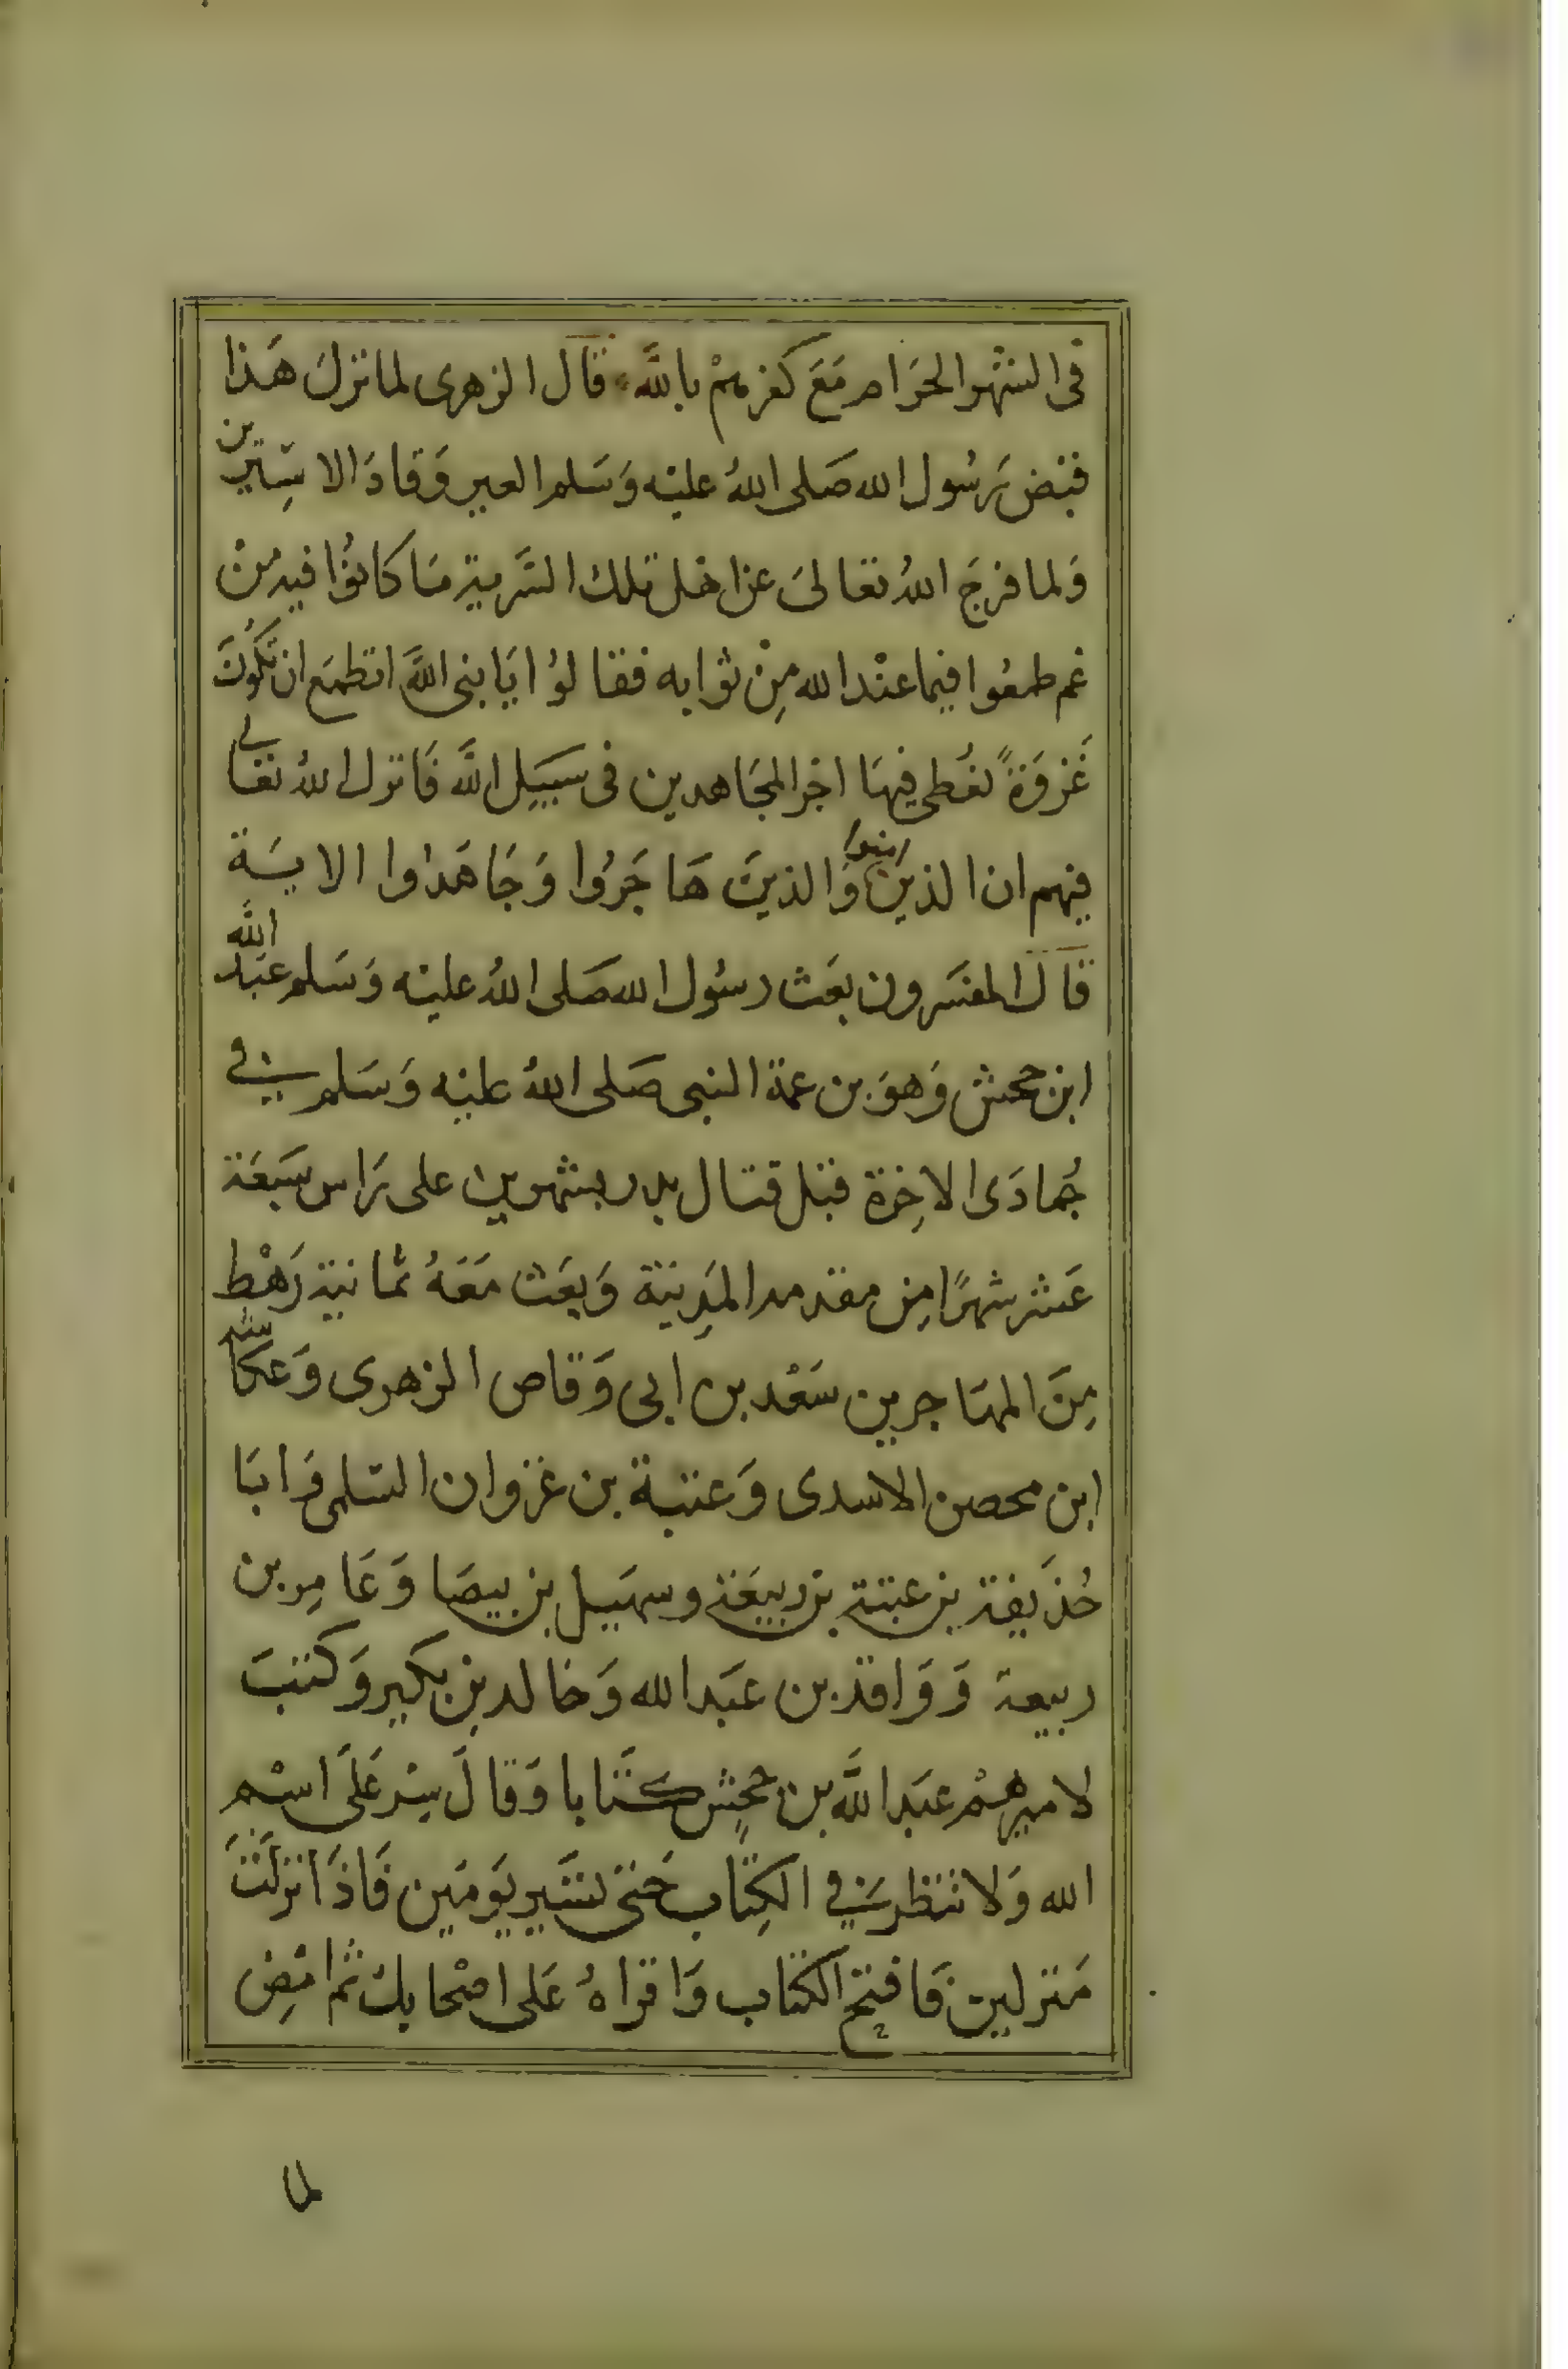 فى الشهر الحَرام مَعَ كفرهمْ بالله قال الزهرى لما نزلَ هَذا
فقبض رَسُول الله صَلى اللهُ عليْه وَسَلم العير وَفادَا الاسِيَرين
وَلما فرجَ اللهُ تعَالىَ عن اهل تلك السَّرية مَا كانوُا فيه منْ
غم طمعُوا فيما عنْد الله مِنْ ثوَابه فقالوُا يَا نبى اللهَّ اتطمَع ان تكُونَ
غَزوَةً نعُطى فيهَا اجْر المجَاهدين فى سبَيل اللهَّ فَانزل اللهُ تعَالى
فيهم ان الذين امنوا وَالذينَ هَاجَرُوا وَجَاهَدُوا الايَة
قالَ المفسَرون بعَث رسُول الله صَلى اللهُ عليْه وَسَلم عبَد الله
ابن جحش وَهوَ بن عمة النبى صَلى اللهُ عليْه وَسَلم فى
جُمادَى الاخِرة قبْل قتال بدر بشهرين على رَاس سَبعَة
عَشر شهرًا مِن مقدمه المَدِينة وَبعَث مَعَهُ ثمانية رَهْط
مِنَ المهَاجرين سَعْد بن ابى وَقاص الزهرى وَعكاشة
ابن محصن الاسدى وَعتبة بن غزوان السَلمى وَابَا
حُذَيفة بن عتبة بن ربيعَة وسهَيل بن بيضَا وَعَامِر بن
ربيعة وَوَاقد بن عبَد الله وَخالد بن بكير وَكتبَ
لاميرهمْ عبَد اللهَّ بن جحش كتَابا وَقالَ سِرْ عَلَى اسْم
الله وَلا تنظر فى الكِتَاب حَتى تسَير يوَمَين فَاذَا نزلَتَ
مَنزلين فَافتح الكتاب وَاقراهُ عَلى اصْحابك ثم امْضِ
لما